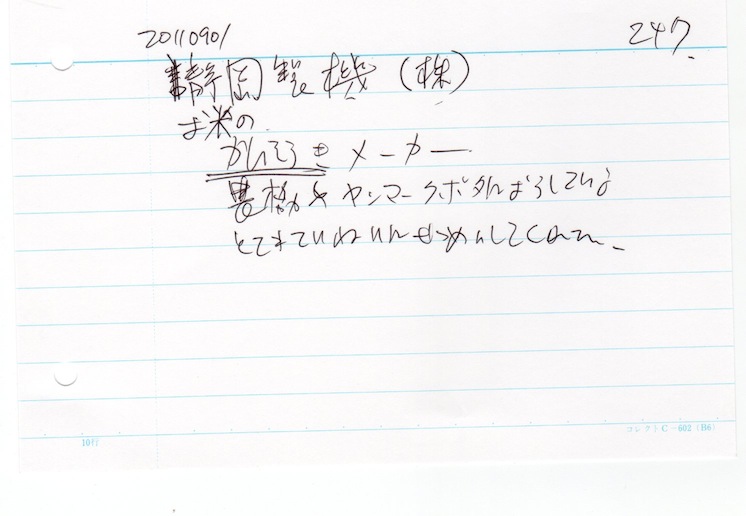 20110901 247
静岡製機(株)
お米の
かんそうきメーカー
農機や ヤンマー クボタ
とてもていねいに せつめいしてくれた
10行 コレクト C-602 (B6)